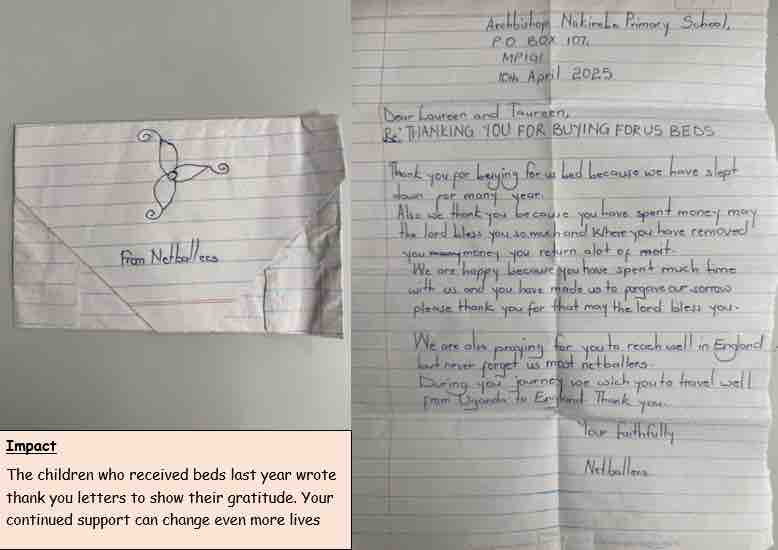 From Netballees
Impact
The children who received beds last year wrote
thank you letters to show their gratitude. Your
continued support can change even more lives
Archbishop Primary School,
P.O BOX 107,
MPIGI
10th April 2025
Dear Laureen and Taureen,
Re: THANKING YOU FOR BUYING FOR US BEDS
Thank you for buying for us bed because we have slept
down for many year.
Also we thank you because you have spent money may
the lord bless you so much and where you have removed
you money you return alot of
We are happy because you have spent much time
with us and you have made us to forgave our sorrow
please thank you for that may the lord bless you.
We are also praying for you to reach well in England
but never forget us most netballers.
During you journey we wich you to travel well
from Uganda to England. Thank you.
Your faithfully
Netballers